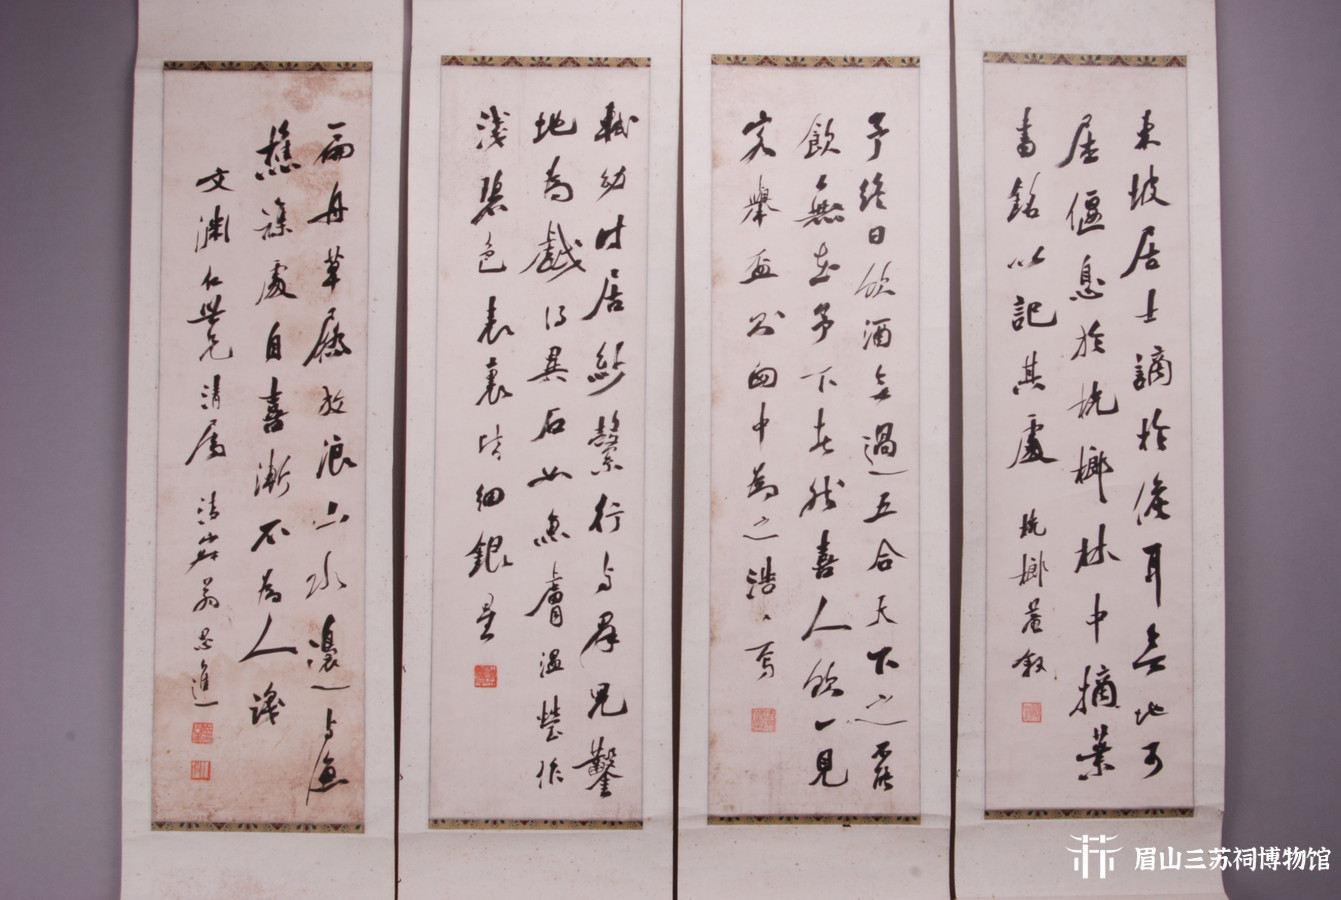 東坡居士謫於儋耳無地可
居偃息於桄榔林中摘葉
書銘以記其處
桄榔菴敘
予終日飲酒無過五合天下之不能
飲無在予下者然喜人飲一見
客舉盃則胸中為之浩、焉
軾幼時居紗縠行与群兒鑿
地為戲得異石如魚膚溫瑩作
淺碧色表裏皆細銀星
扁舟草屩放浪山水間与漁
樵雜處自喜漸不為人識
文淵仁世兄清屬
翁思進
眉山三苏祠博物馆